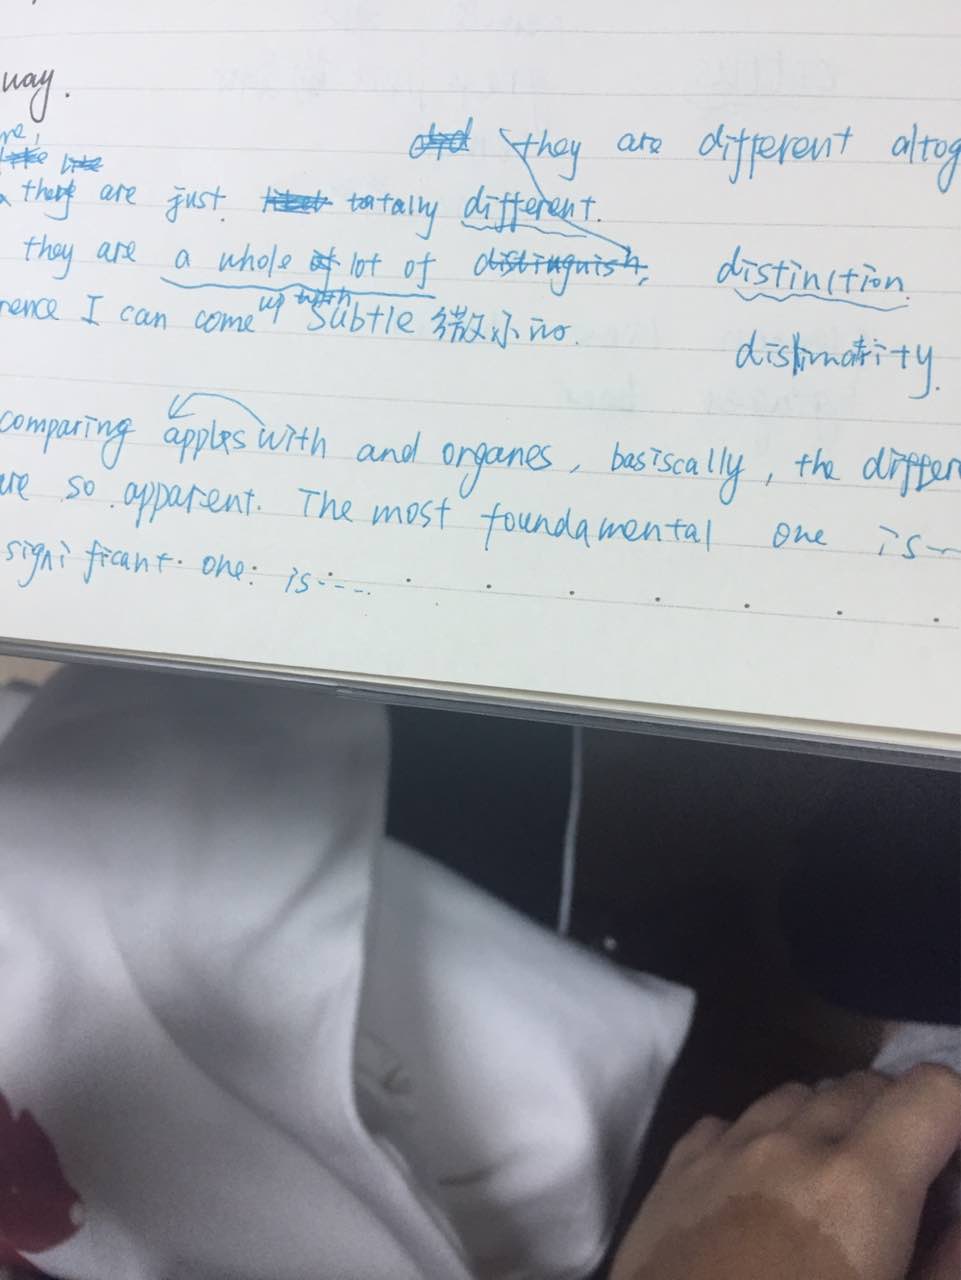 way.
they are different altog
they are just totally different.
they are a whole lot of distinguish, distinction.
rence I can come up with subtle 微小no.
comparing apples with and organes, basiscally, the differen
are so apparent. The most foundamental one is
significant one: is